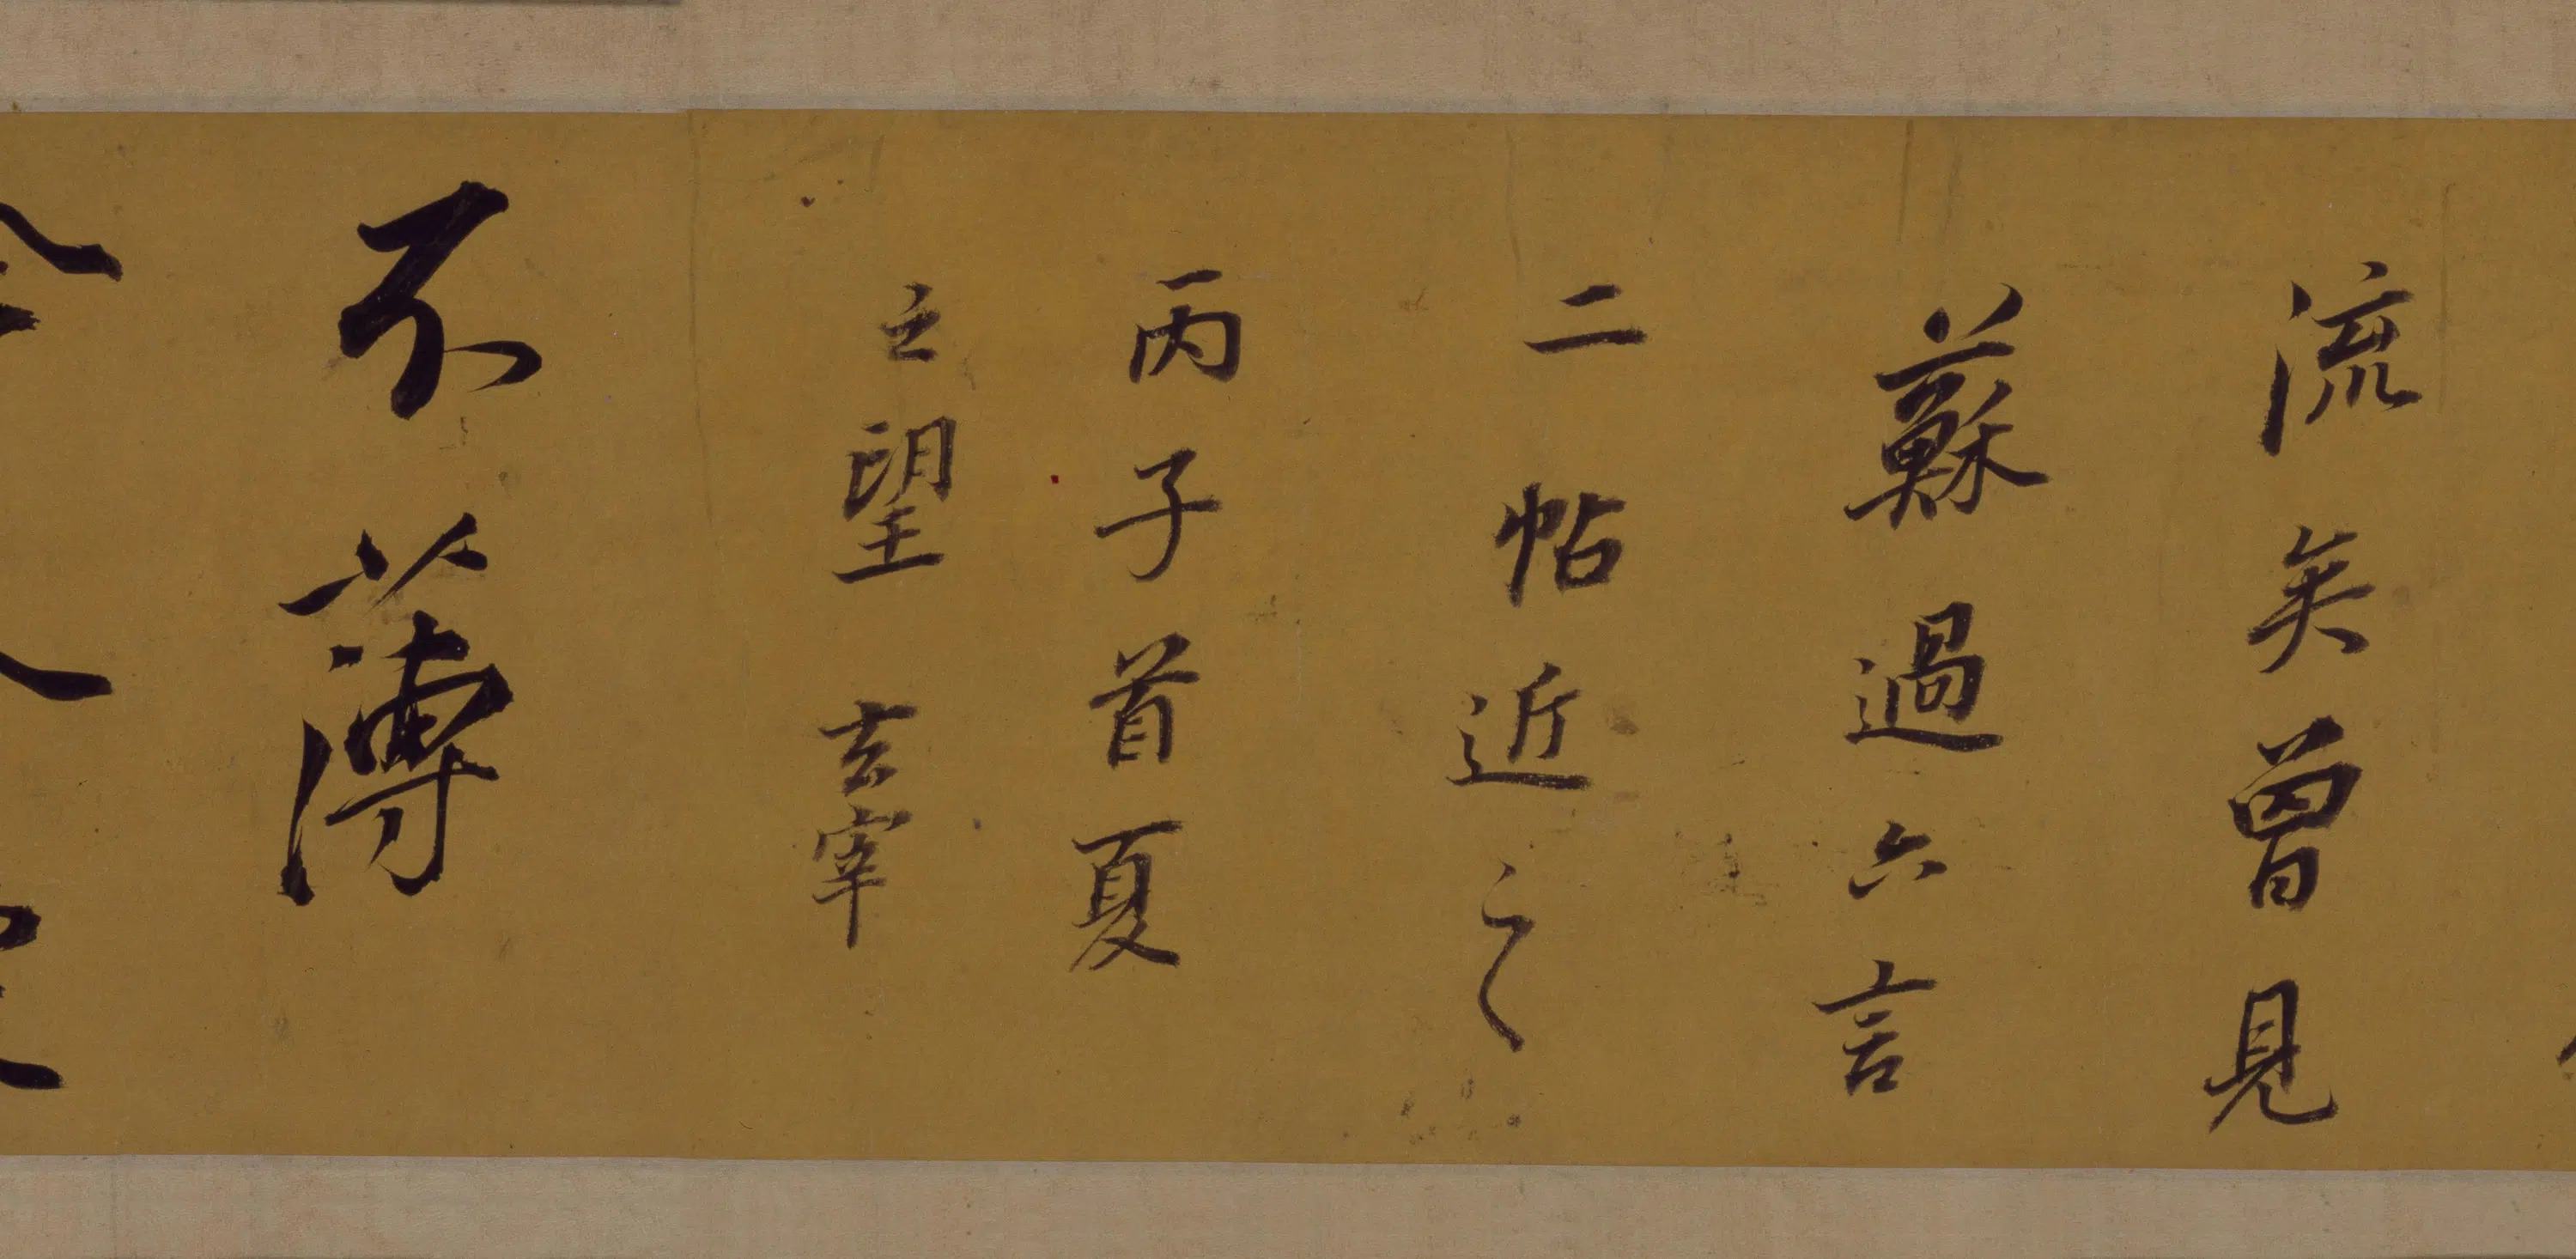 流矣曾見
蘇過六言
二帖近之
丙子首夏
之望 玄宰
不薄